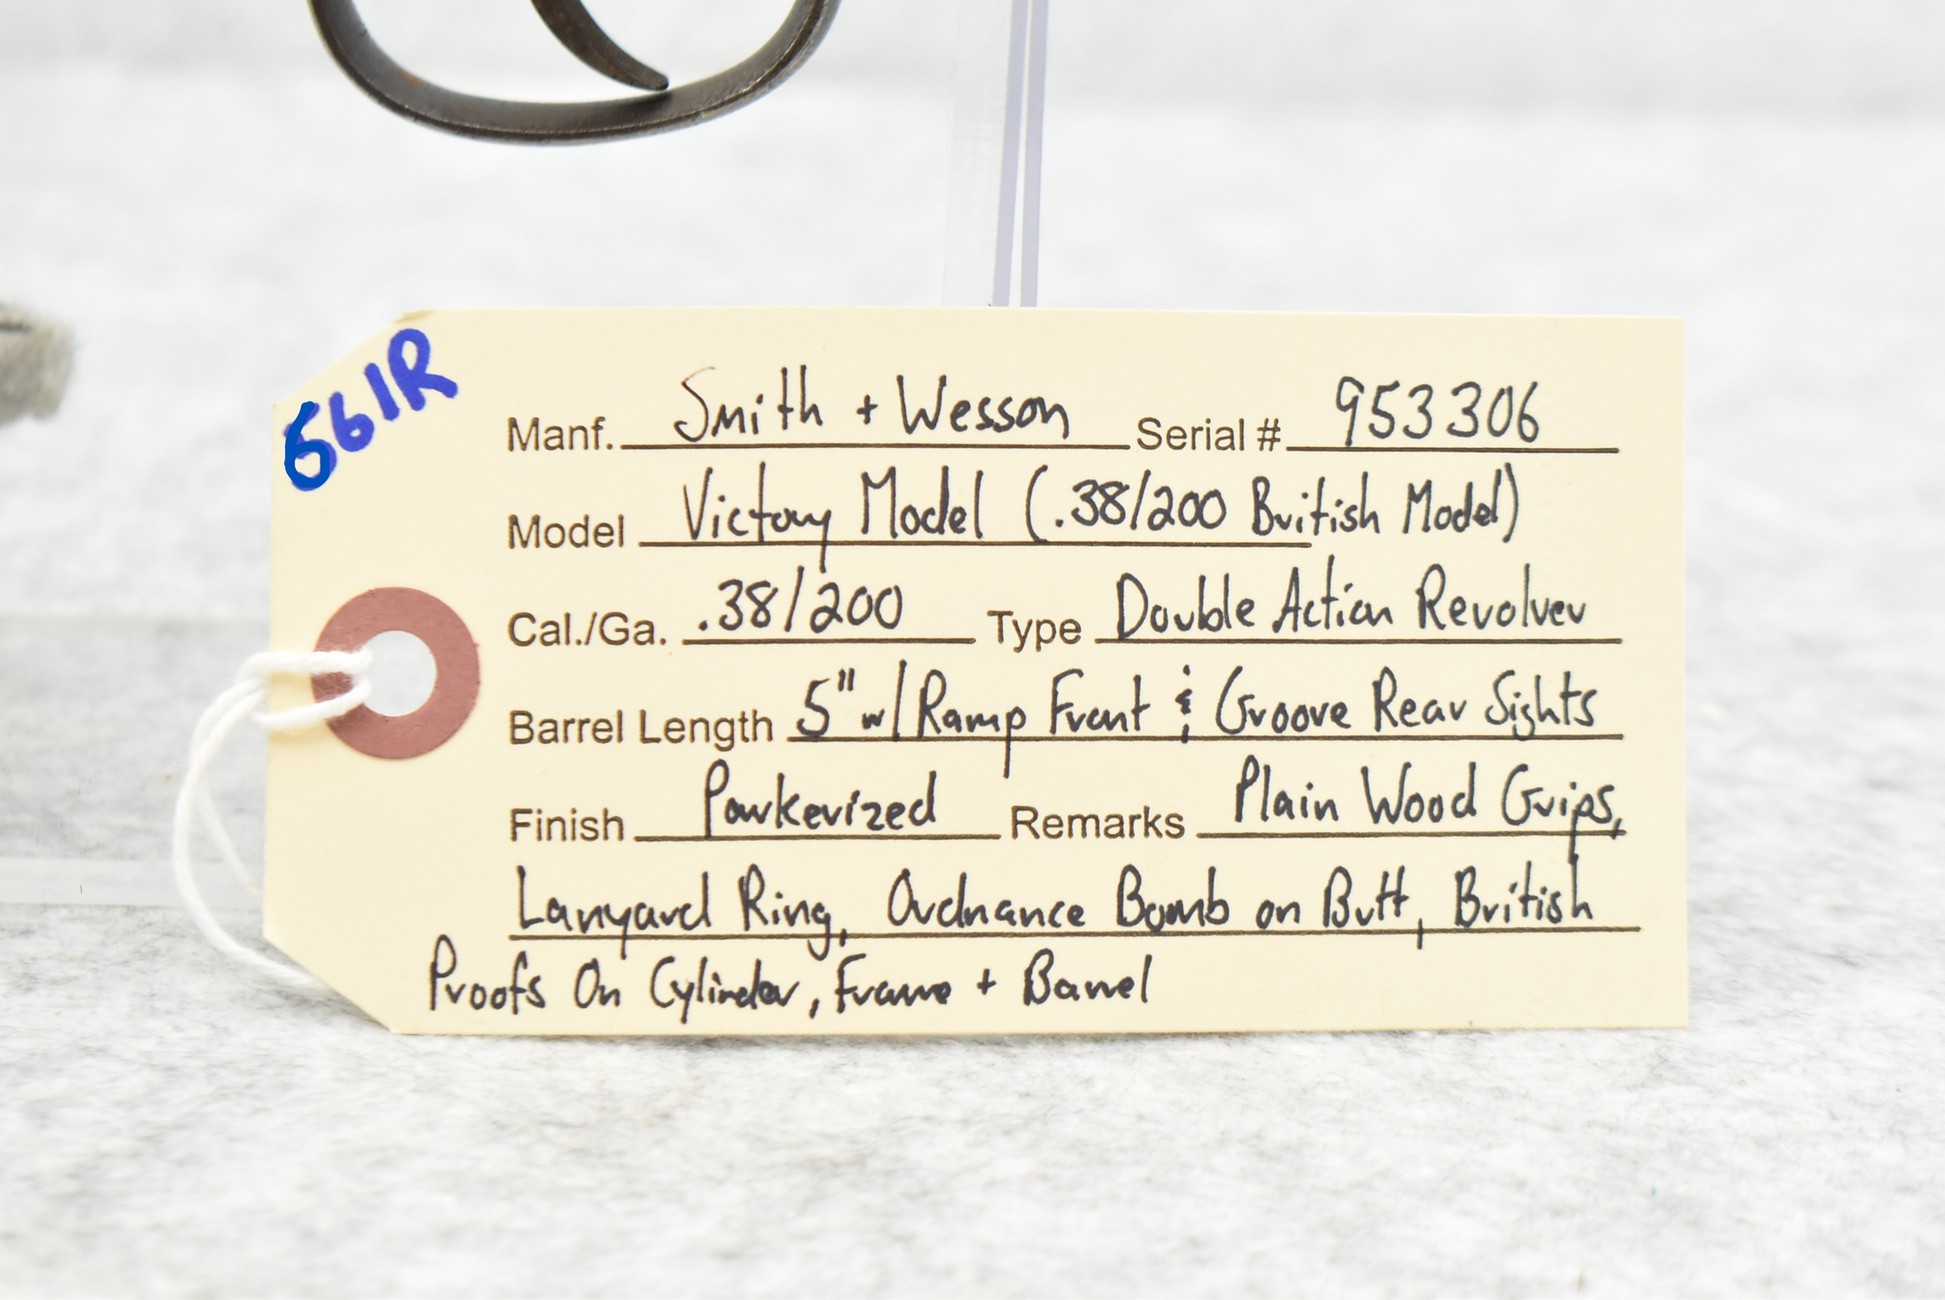 661R
Manf. Smith + Wesson Serial # 953306
Model Victory Model (.38/200 British Model)
Cal./Ga. .38/200 Type Double Action Revolver
Barrel Length 5" w/ Ramp Front & Groove Rear Sights
Finish Parkerized Remarks Plain Wood Grips,
Lanyard Ring, Ordnance Bomb on Butt, British
Proofs On Cylinder, Frame + Barrel